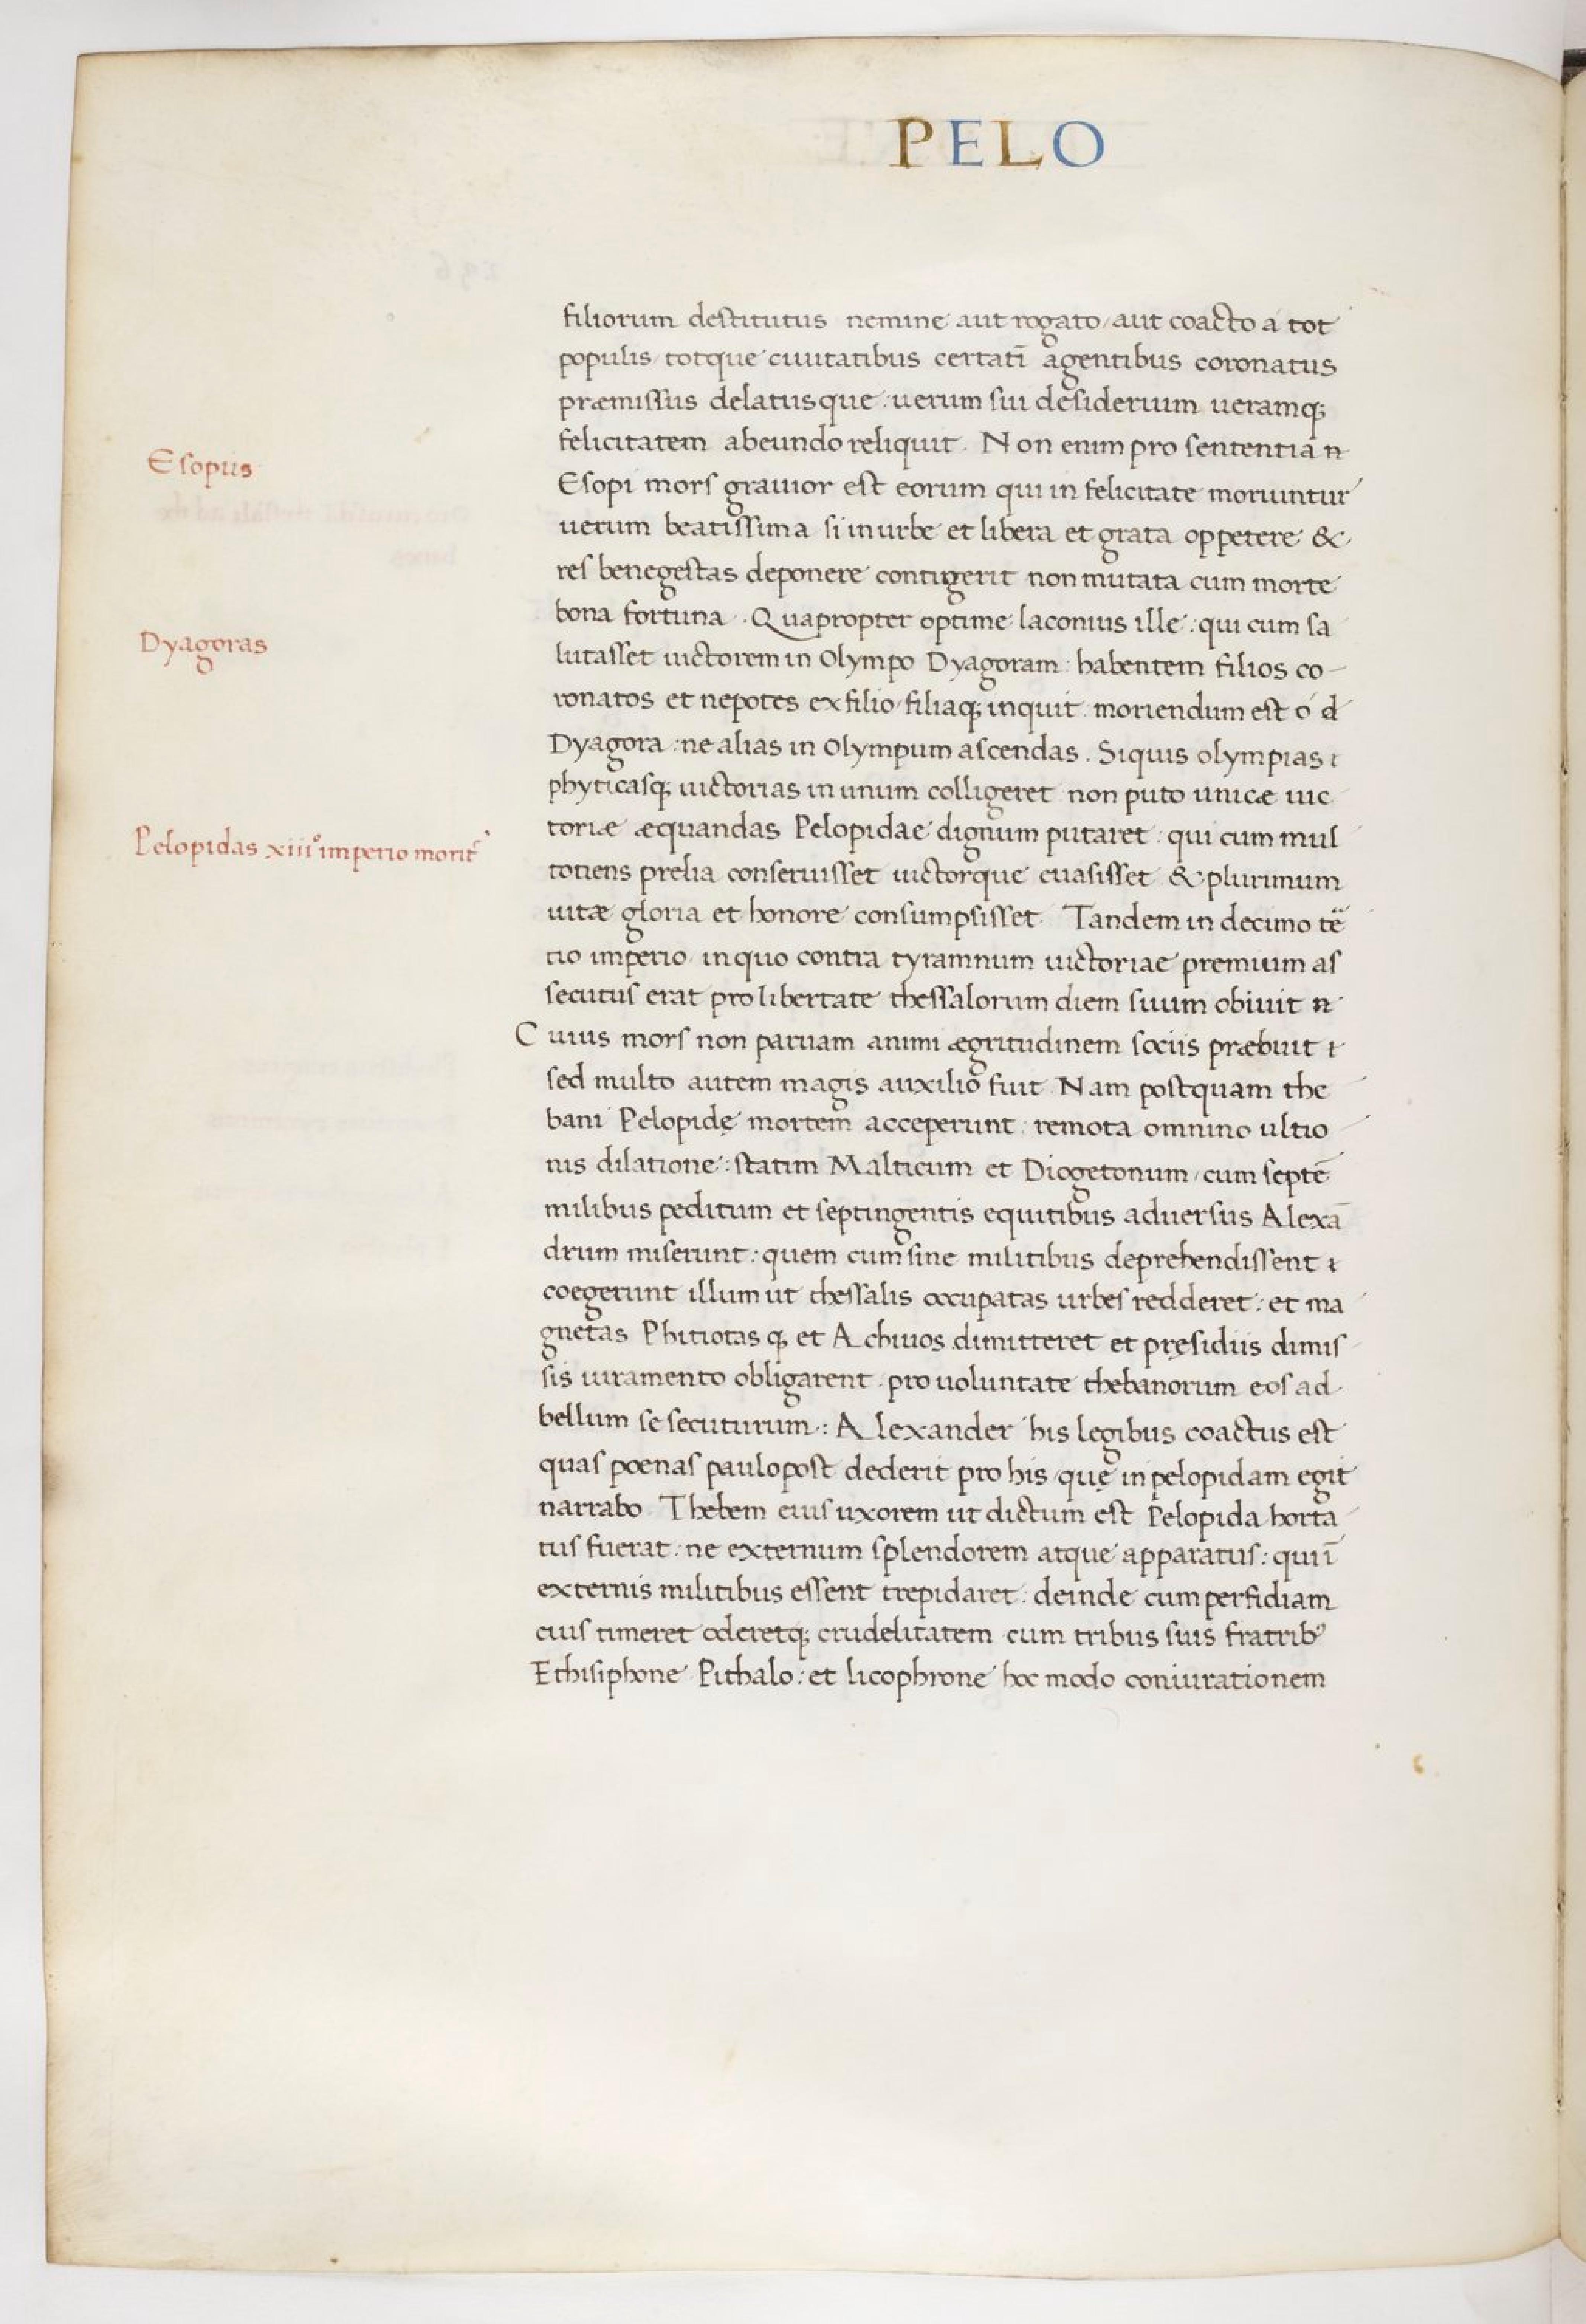 PELO
filiorum destitutus nemine aut rogato / aut coacto a tot
populis / totque ciuitatibus certatī agentibus coronatus
præmissus delatusque : uerum sui desiderium ueramq;
felicitatem abeundo reliquit. Non enim pro sententia n
Esopus
Esopi mors grauior est eorum qui in felicitate moriuntur
uerum beatissima si in urbe et libera et grata oppetere &
res benegestas deponere contingerit non mutata cum morte
bona fortuna . Quapropter optime laconius ille : qui cum sa
Dyagoras
lutasset uictorem in Olympo Dyagoram : habentem filios co-
ronatos et nepotes ex filio / filiaq; inquit . moriendum est ó d
Dyagora : ne alias in Olympum ascendas . Siquis olympias ı
phyticasq; uictorias in unum colligeret non puto unicæ uic
Pelopidas xiii° imperio morit᷑
toriæ æquandas Pelopidae dignum putaret : qui cum mul
totiens prelia conseruisset uictorque euasisset & plurimum
uitæ gloria et honore consumpsisset. Tandem in decimo te᷑
tio imperio / in quo contra tyramnum uictoriae premium as
secutus erat pro libertate thessalorum diem suum obiuit n
Cuius mors non paruam animi ægritudinem sociis præbuit ı
sed multo autem magis auxilio fuit. Nam postquam the
bani Pelopidę mortem acceperunt : remota omnino ultio
nis dilatione : statim Malticum et Diogetonum / cum septē
milibus peditum et septingentis equitibus aduersus Alexā
drum miserunt : quem cum sine militibus deprehendissent ı
coegerunt illum ut thessalis occupatas urbes redderet : et ma
gnetas Phitiotas q; et Achiuos dimitteret et pręsidiis dimis
sis iuramento obligarent . pro uoluntate thebanorum eos ad
bellum se secuturum : Alexander his legibus coactus est
quas poenas paulopost dederit pro his / quę in pelopidam egit
narrabo . Thebem eius uxorem ut dictum est Pelopida horta
tus fuerat : ne externum splendorem atque apparatus : qui ī
externis militibus essent trepidaret : deinde cum perfidiam
eius timeret oderetq; crudelitatem cum tribus suis fratrib᾿
Ethisiphone Pithalo : et licophrone hoc modo coniurationem